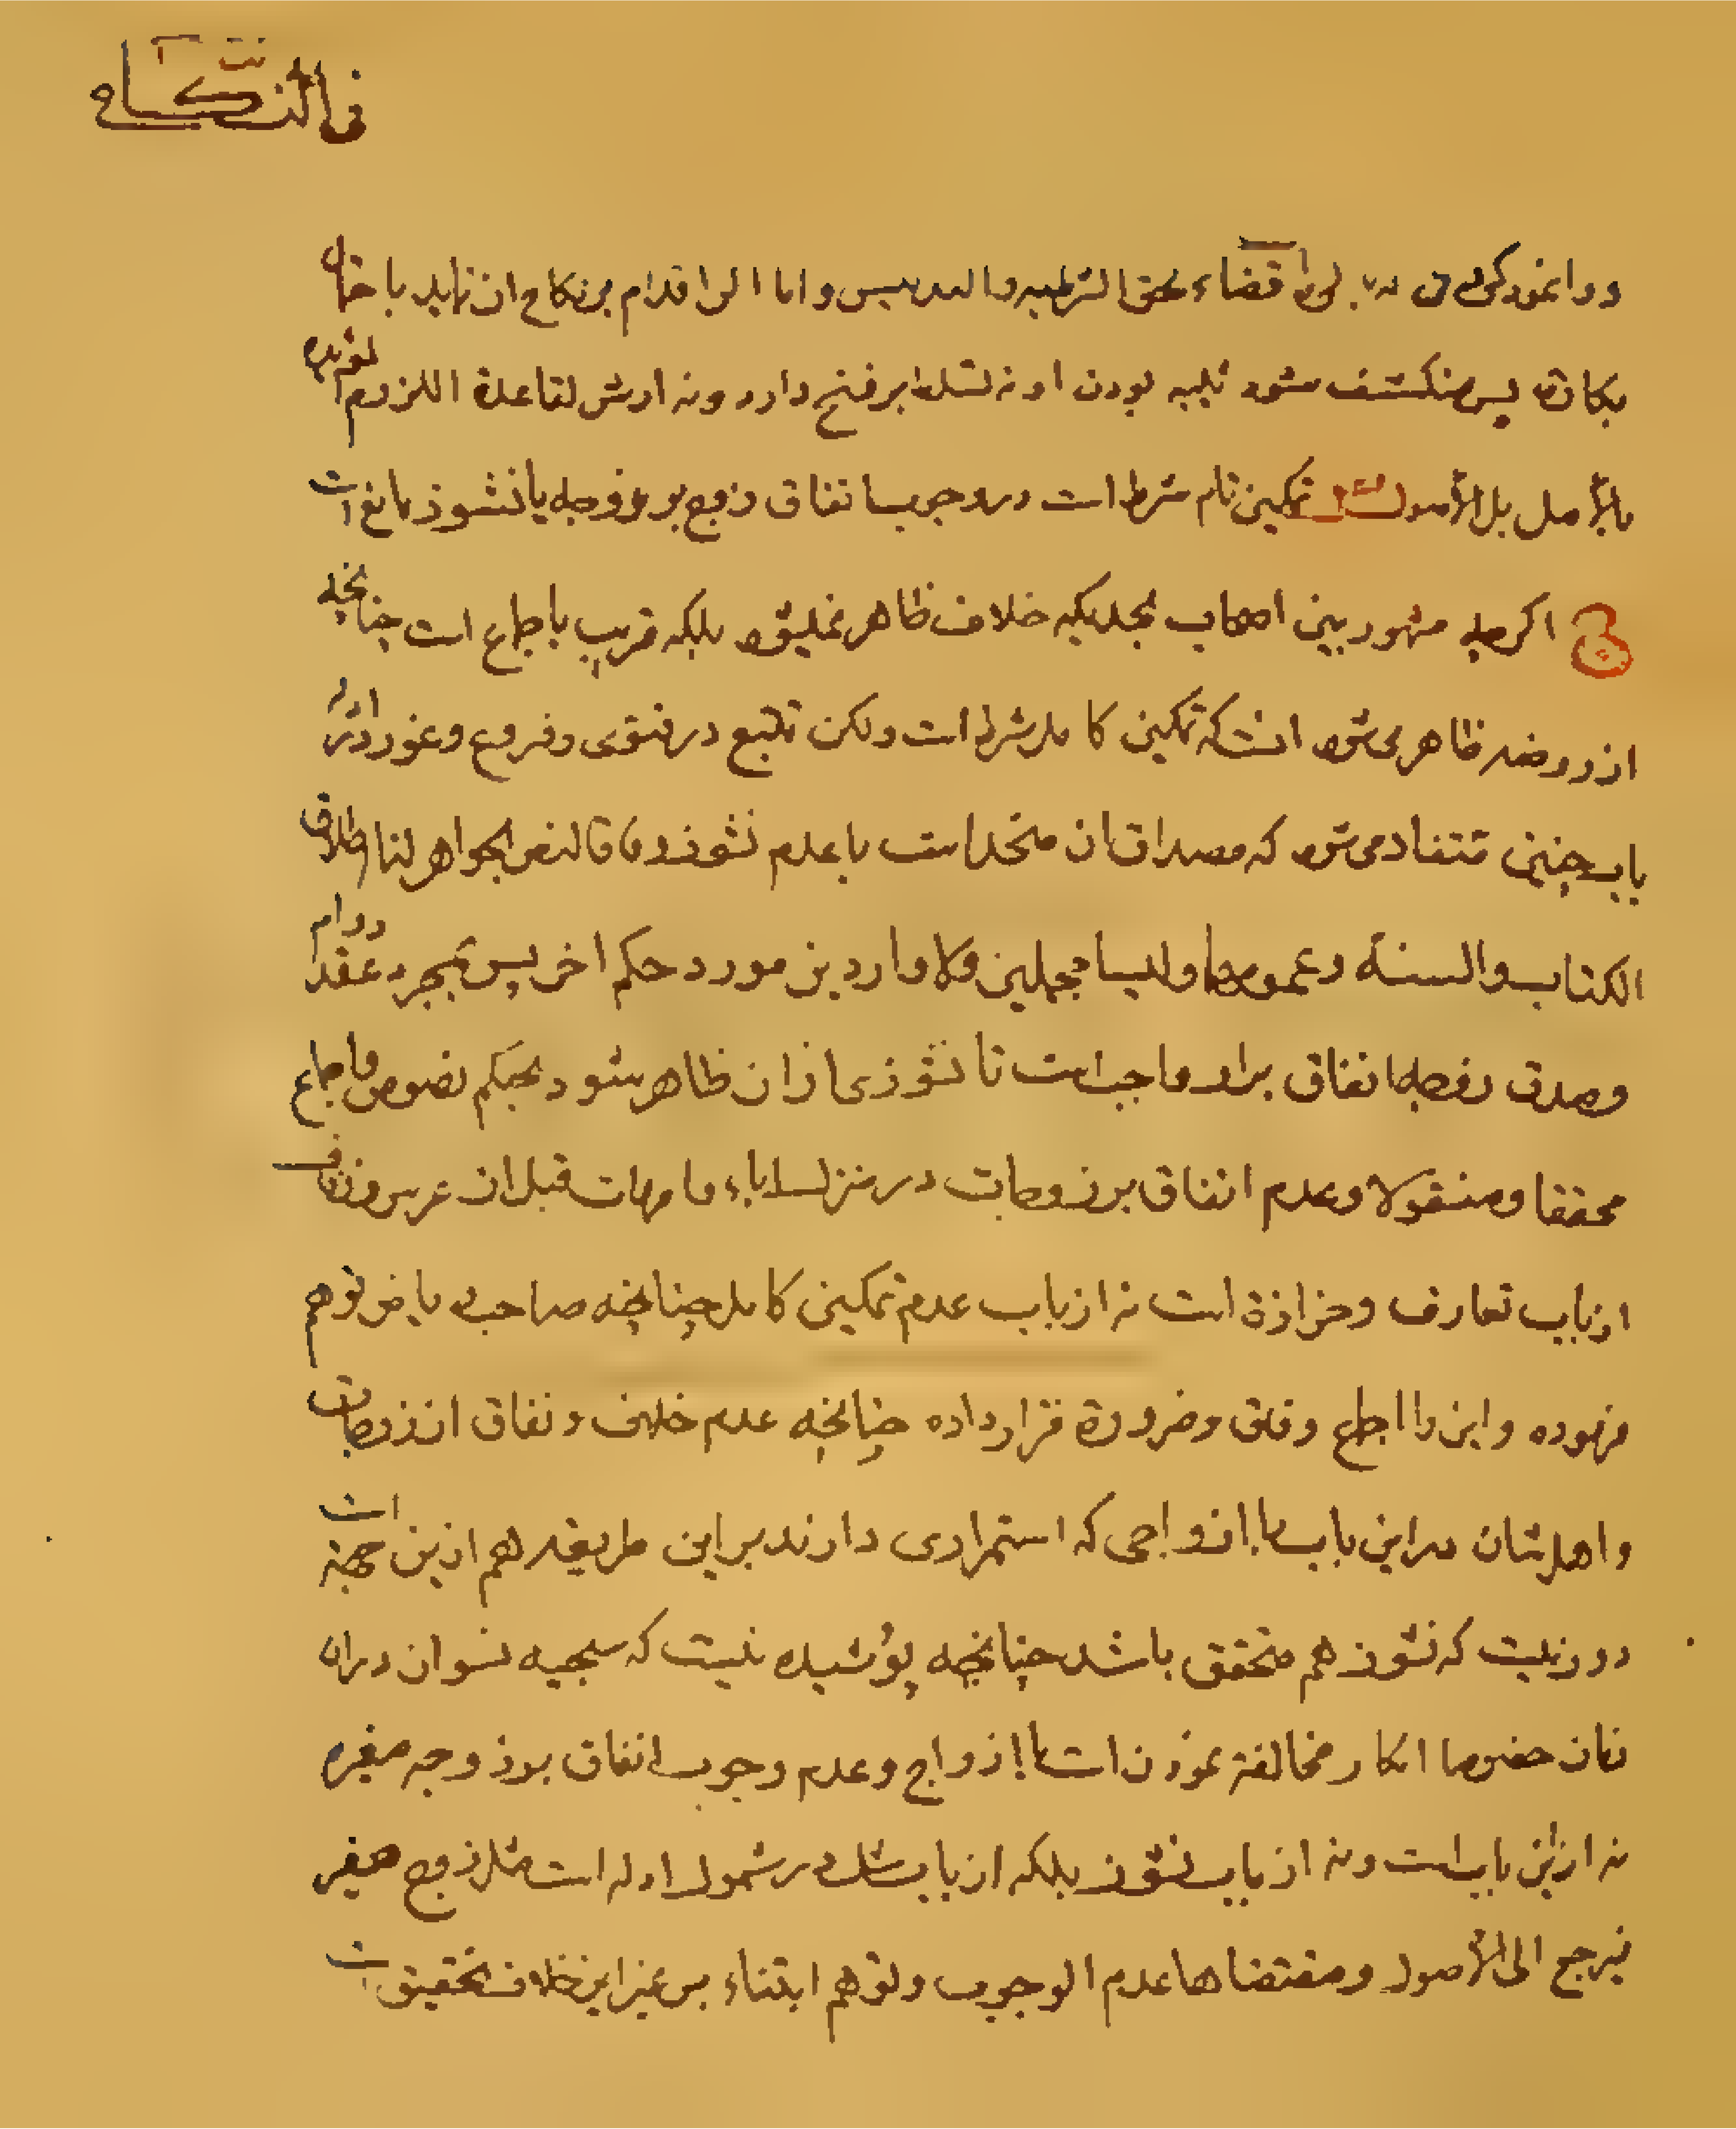 فی النکاح
و وانمود کردن قضاء لحق الشرطیه والتدلیس واما اگر اقدام بر نکاح ان نماید باحتمال
بکارة پس منکشف شود ثیبه بودن او نه تسلط بر فسخ دارد ونه ارش لقاعدة اللزوم
بالأصل بل الأصول تمکین تام شرط است در وجوب انفاق زوج بر زوجه یا نشوز مانع است
ج اگرچه مشهور بین اصحاب بحدیکه خلاف ظاهر نمیشود بلکه قریب باجماع است چنانچه
از روضه ظاهر میشود انست که تمکین کامل شرط است ولکن تتبع در فتوی وفروع وغور در ادله
باب چنین مستفاد میشود که مصداق ان متحد است با عدم نشوز وفاقا لنص الجواهر لنا اطلاق
الکتاب والسنة وعمومهما ولیسا مجملین ولا واردین مورد حکم اخر پس بمجرد عقد دوام
وصدق زوجه انفاق براو واجب است تا نشوزی از ان ظاهر شود بحکم نصوص واجماع
محققا ومنقولا وعدم انفاق بر زوجات در منزل اباء وامهات قبل از عروس وزفاف
از باب تعارف وحزازة است نه از باب عدم تمکین کامل چنانچه صاحب ریاض توهم
فرموده واین را اجماع وفاق وضرورة قرار داده چنانچه عدم خلاف ونفاق از زوجات
واهلشان در این باب با ازواجی که استمراری دارند براین طریقه هم ازین جهة است
دور نیست که نشوز هم متحقق باشد چنانچه پوشیده نیست که سجیه نسوان در ان
زمان خصوصا ابکار مخالفة نمودن است با ازواج وعدم وجوب انفاق بر زوجه صغیره
نه ازین باب است ونه از باب نشوز بلکه از باب شک در شمول ادله است مثل زوج صغیر
فیرجع الی الأصول ومقتضاها عدم الوجوب وتوهم ابتناء بر غیر این خلاف تحقیق است